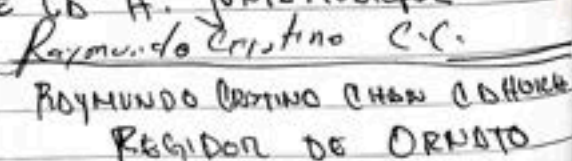 Raymundo Cristino C.C.
RAYMUNDO CRISTINO CHAN CAHUICH
REGIDOR DE ORNATO